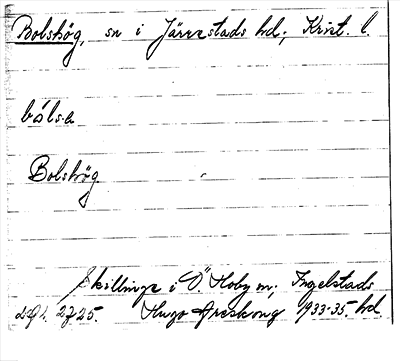 Bolshög, sn i Järrestads hd; Krist. l.
bólsa
Bolshög
Skillinge i Ö. Hoby m; Ingelstads
2725. Hugo Areskoug 1933-35 hd